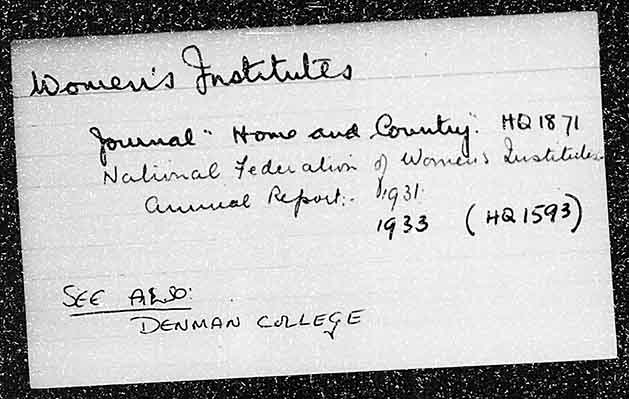 Women's Institutes
Journal "Home and Country". HQ 1871
National Federation of Women's Institutes.
Annual Report:- 1931.
1933 (HQ 1593)
SEE ALSO:
DENMAN COLLEGE